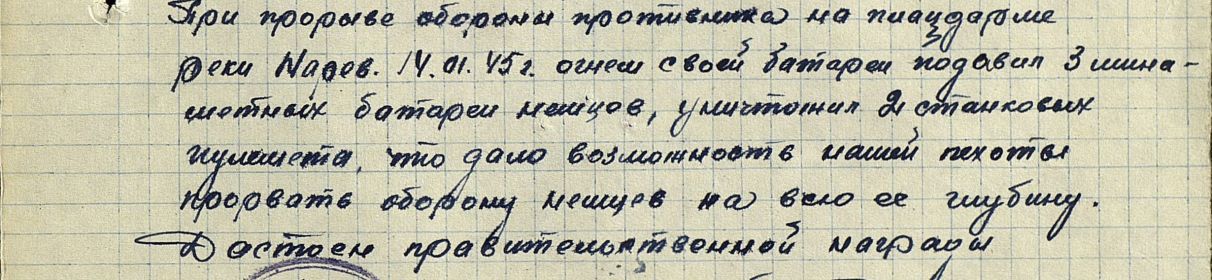 При прорыве обороны противника на плацдарме
реки Нарев. 14.01.45г. огнем своей батареи подавил 3 мина-
метных батареи немцев, уничтожил 2 станковых
пулемета, что дало возможность нашей пехоты
прорвать оборону немцев на всю ее глубину.
Достоен правительственной награды